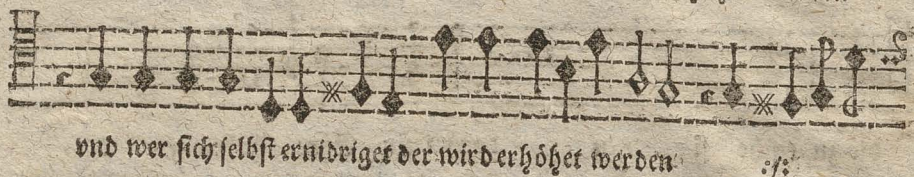 vnd wer sich selbst ernidriget der wird erhöhet werden :/: